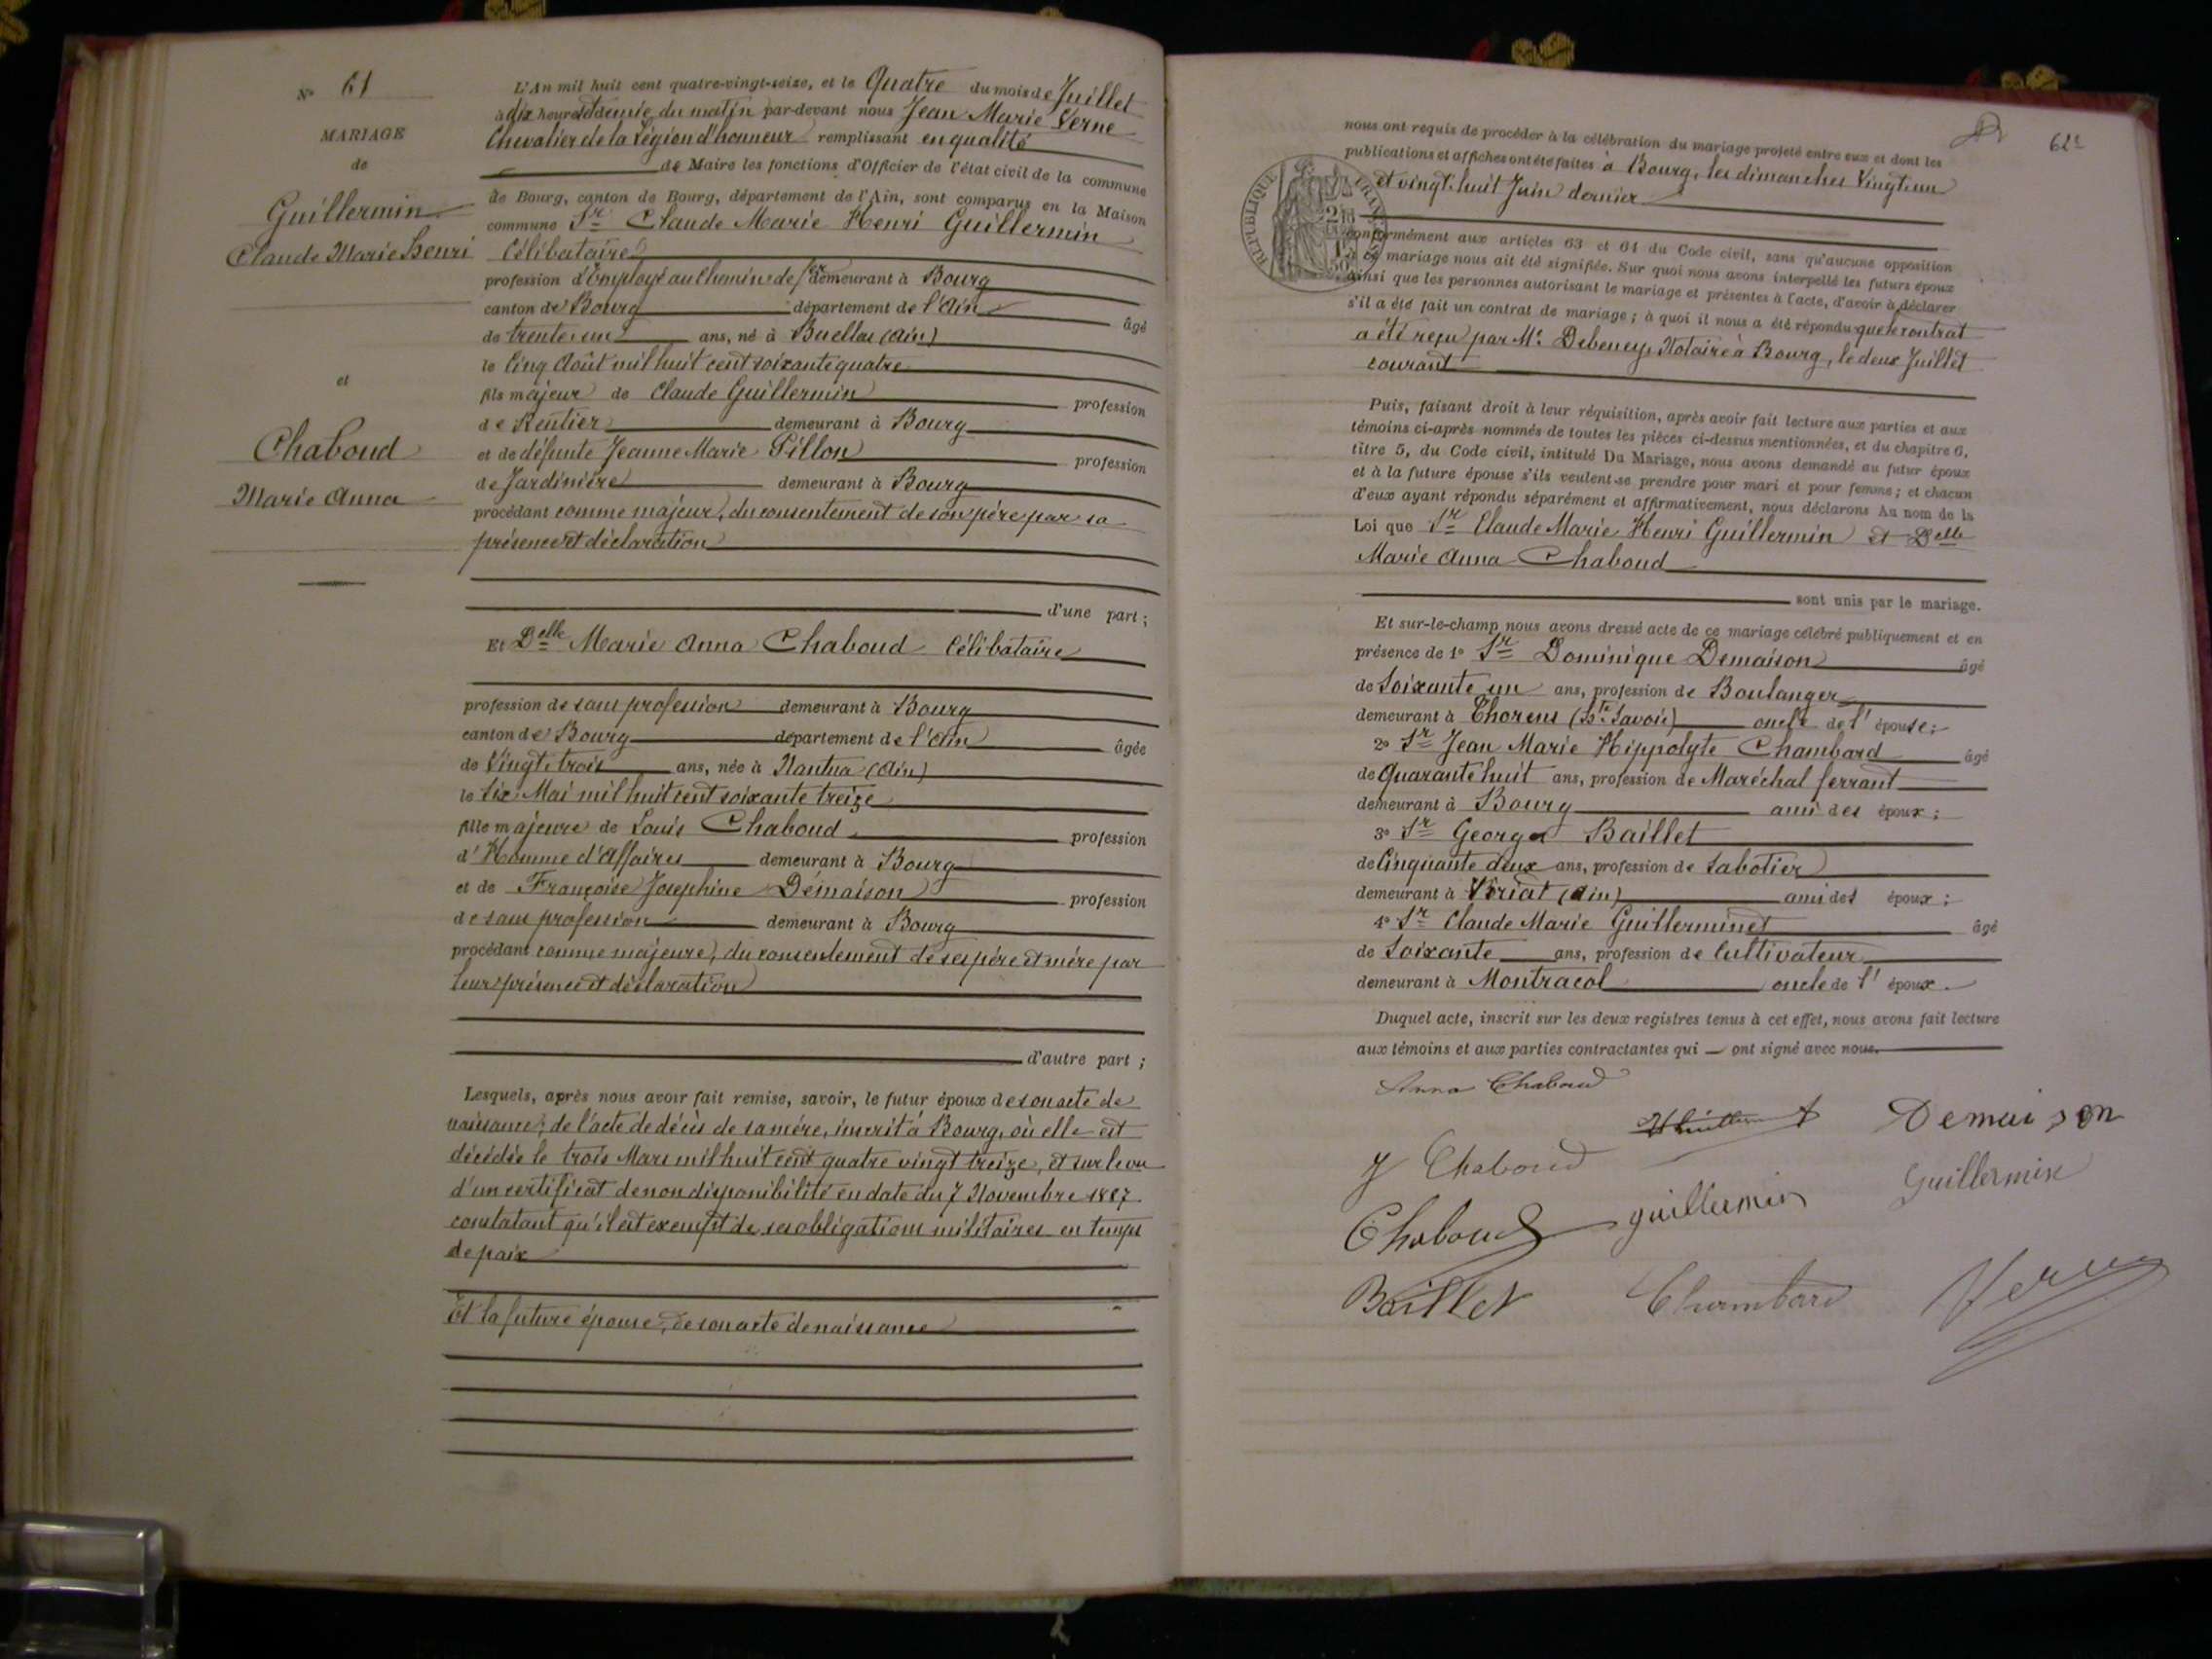 N° 61
MARIAGE
de
Guillermin
Claude Marie Henri
et
Chaboud
Marie Anna
L'An mil huit cent quatre-vingt-seize, et le Quatre du mois de Juillet
à dix heures et demie du matin par-devant nous Jean Marie Verne
Chevalier de la Légion d'honneur remplissant en qualité
de Maire les fonctions d'Officier de l'état civil de la commune
de Bourg, canton de Bourg, département de l'Ain, sont comparus en la Maison
commune Sr Claude Marie Henri Guillermin
Célibataire
profession d'Employé au Chemin de fer demeurant à Bourg
canton de Bourg département de l'Ain âgé
de trente un ans, né à Buellas (Ain)
le Cinq Août mil huit cent soixante quatre
fils majeur de Claude Guillermin profession
de Rentier demeurant à Bourg
et de défunte Jeanne Marie Pillon profession
de Jardinière demeurant à Bourg
procédant comme majeur, du consentement de son père par sa
présence et déclaration
d'une part ;
Et Delle Marie Anna Chaboud Célibataire
profession de sans profession demeurant à Bourg
canton de Bourg département de l'Ain âgée
de Vingt trois ans, née à Nantua (Ain)
le six Mai mil huit cent soixante treize
fille majeure de Louis Chaboud profession
d'Homme d'Affaires demeurant à Bourg
et de Françoise Josephine Démaison profession
de sans profession demeurant à Bourg
procédant comme majeure, du consentement de ses père et mère par
leur présence et déclaration
d'autre part ;
Lesquels, après nous avoir fait remise, savoir, le futur époux de son acte de
naissance, de l'acte de décès de sa mère, inscrit à Bourg, où elle est
décédée le trois Mars mil huit cent quatre vingt treize, et sur le vu
d'un certificat de non disponibilité en date du 7 Novembre 1887
constatant qu'il est exempt de ses obligations militaires en temps
de paix
Et la future épouse, de son acte de naissance
62e
RÉPUBLIQUE FRANÇAISE
nous ont requis de procéder à la célébration du mariage projeté entre eux et dont les
publications et affiches ont été faites à Bourg, les dimanches Vingt un
et vingt huit Juin dernier
conformément aux articles 63 et 64 du Code civil, sans qu'aucune opposition
à ce mariage nous ait été signifiée. Sur quoi nous avons interpellé les futurs époux
ainsi que les personnes autorisant le mariage et présentes à l'acte, d'avoir à déclarer
s'il a été fait un contrat de mariage ; à quoi il nous a été répondu que le contrat
a été reçu par Me Debeney, Notaire à Bourg, le deux Juillet
courant
Puis, faisant droit à leur réquisition, après avoir fait lecture aux parties et aux
témoins ci-après nommés de toutes les pièces ci-dessus mentionnées, et du chapitre 6,
titre 5, du Code civil, intitulé Du Mariage, nous avons demandé au futur époux
et à la future épouse s'ils veulent se prendre pour mari et pour femme ; et chacun
d'eux ayant répondu séparément et affirmativement, nous déclarons Au nom de la
Loi que Sr Claude Marie Henri Guillermin et Delle
Marie Anna Chaboud
sont unis par le mariage.
Et sur-le-champ nous avons dressé acte de ce mariage célébré publiquement et en
présence de 1° Sr Dominique Demaison âgé
de Soixante un ans, profession de Boulanger
demeurant à Thorens (Hte Savoie) oncle de l'épouse ;
2° Sr Jean Marie Hippolyte Chambard âgé
de Quarante huit ans, profession de Maréchal ferrant
demeurant à Bourg ami des époux ;
3° Sr George Baillet
de Cinquante deux ans, profession de Sabotier
demeurant à Viriat (Ain) ami des époux ;
4° Sr Claude Marie Guillerminet âgé
de Soixante ans, profession de Cultivateur
demeurant à Montracol oncle de l'époux.
Duquel acte, inscrit sur les deux registres tenus à cet effet, nous avons fait lecture
aux témoins et aux parties contractantes qui ont signé avec nous.
Anna Chaboud
Demaison
J Chaboud
Guillermin
Chaboud
guillermin
Baillet
Chambard
Verne